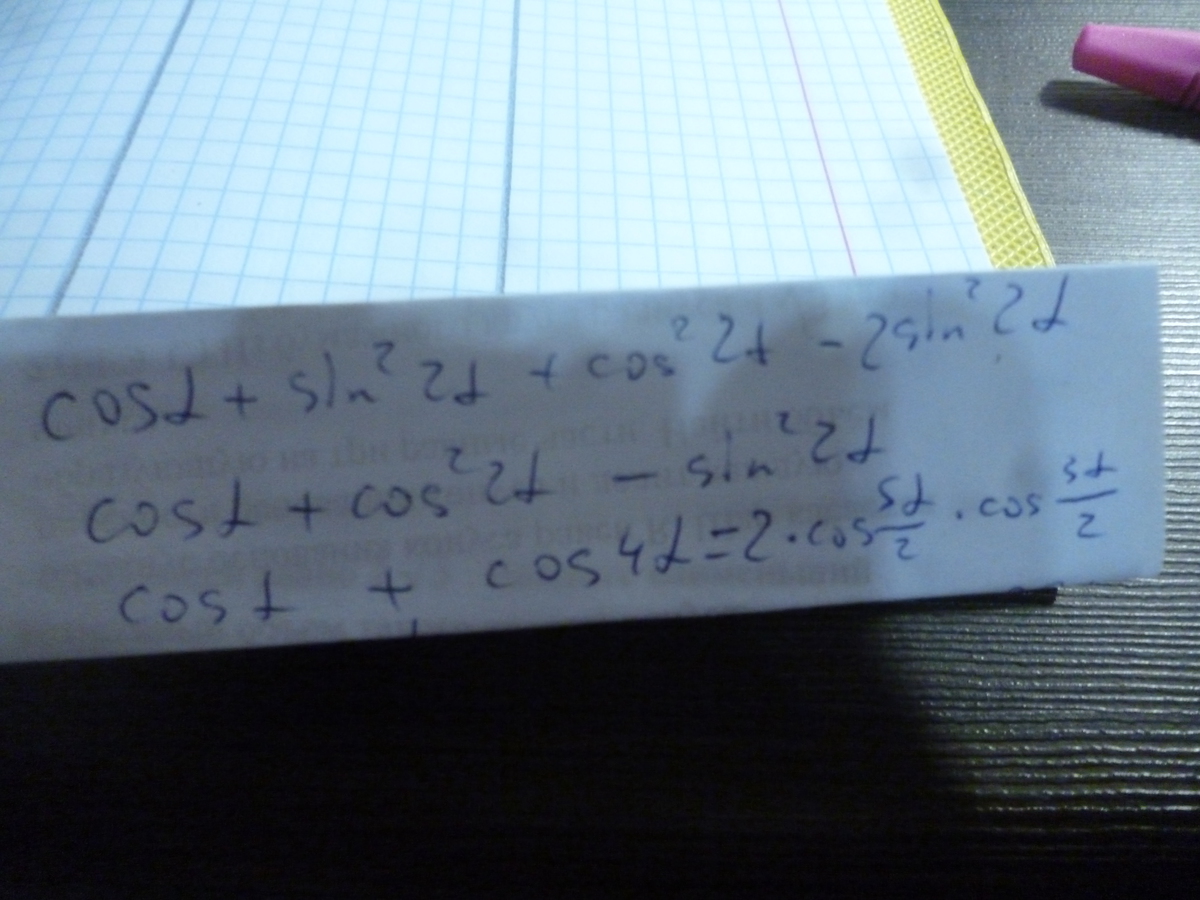 cosα + sin²2α + cos²2α - 2sin²2α
cosα + cos²2α - sin²2α
cosα + cos4α = 2·cos 5α/2 · cos 3α/2